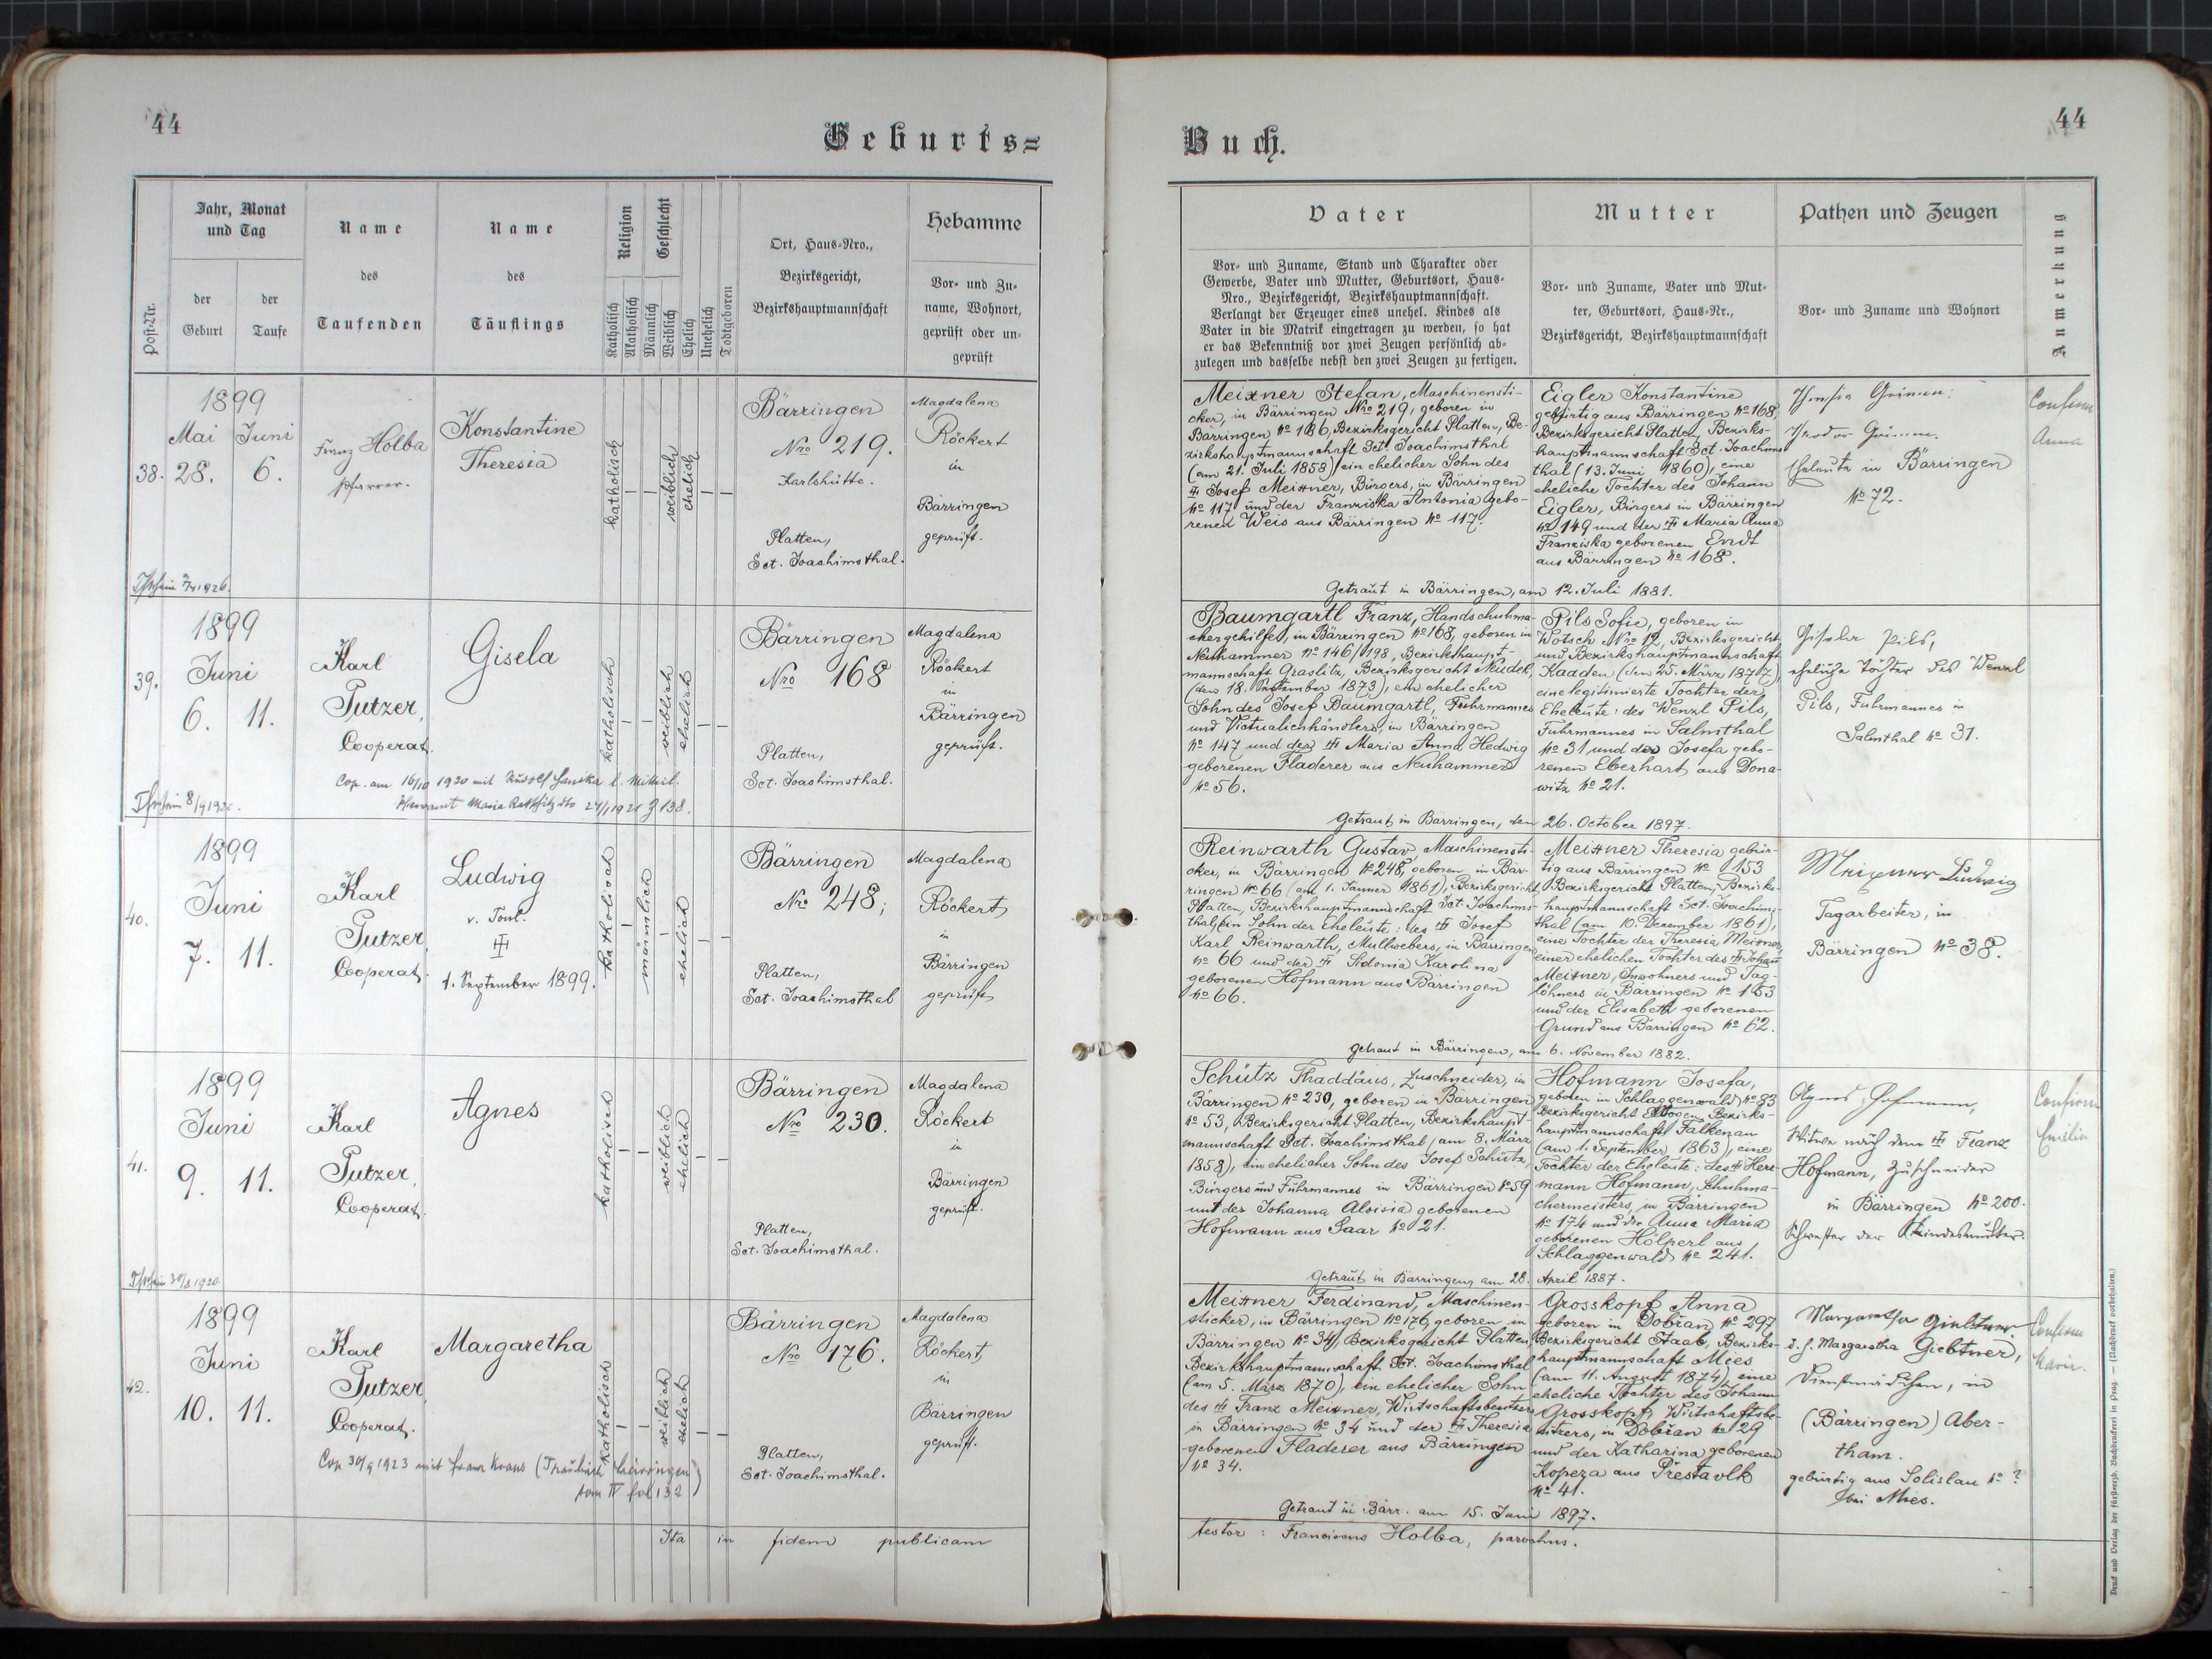 44
44
Geburts=
Buch.
Post-Nr.
Jahr, Monat
und Tag
der
Geburt
der
Taufe
Name
des
Taufenden
Name
des
Täuflings
Religion
Katholisch
Akatholisch
Geschlecht
Männlich
Weiblich
Ehelich
Unehelich
Todtgeboren
Ort, Haus-Nro.,
Bezirksgericht,
Bezirkshauptmannschaft
Hebamme
Vor- und Zu-
name, Wohnort,
geprüft oder un-
geprüft
Vater
Vor- und Zuname, Stand und Charakter oder
Gewerbe, Vater und Mutter, Geburtsort, Haus-
Nro., Bezirksgericht, Bezirkshauptmannschaft.
Verlangt der Erzeuger eines unehel. Kindes als
Vater in die Matrik eingetragen zu werden, so hat
er das Bekenntniß vor zwei Zeugen persönlich ab-
zulegen und dasselbe nebst den zwei Zeugen zu fertigen.
Mutter
Vor- und Zuname, Vater und Mut-
ter, Geburtsort, Haus-Nr.,
Bezirksgericht, Bezirkshauptmannschaft
Pathen und Zeugen
Vor- und Zuname und Wohnort
Anmerkung
38.
1899
Mai Juni
28. 6.
Franz Holba
Pfarrer.
Konstantine
Theresia
katholisch
weiblich
ehelich
Bärringen
Nro 219.
Karlshütte.
Platten,
Sct. Joachimsthal.
Magdalena
Röckert
in
Bärringen
geprüft.
Meixner Stefan, Maschinensti-
cker, in Bärringen Nro 219, geboren in
Bärringen No 186, Bezirksgericht Platten, Be-
zirkshauptmannschaft Sct. Joachimsthal
(am 21. Juli 1858) ein ehelicher Sohn des
Josef Meixner, Bürgers, in Bärringen
No 117 und der Franziska Antonia gebo-
renen Weis aus Bärringen No 117.
Eigler Konstantine
gebürtig aus Bärringen No 168,
Bezirksgericht Platten, Bezirks-
hauptmannschaft Sct. Joachims
thal (13. Juni 1860), eine
eheliche Tochter des Johann
Eigler, Bürgers in Bärringen
No 149 und der Maria Anna
Franziska geborenen Endt
aus Bärringen No 168.
Eheleute in Bärringen
No 72.
Confirm
Anna
Getraut in Bärringen, am 12. Juli 1881.
39.
1899
Juni
6. 11.
Karl
Putzer,
Cooperat.
Gisela
katholisch
weiblich
ehelich
Bärringen
Nro 168
Platten,
Sct. Joachimsthal.
Magdalena
Röckert
in
Bärringen
geprüft.
Cop. am 16/10 1920 mit Rudolf
Baumgartl Franz, Handschuhma-
chergehilfe, in Bärringen No 168, geboren in
Neuhammer No 146/198, Bezirkshaupt-
mannschaft Graslitz, Bezirksgericht Neudek,
(den 18. September 1873), ein ehelicher
Sohn des Josef Baumgartl, Fuhrmannes
und Victualienhändlers, in Bärringen
No 147 und der Maria Anna Hedwig
geborenen Fladerer aus Neuhammer
No 56.
Pils Sofie, geboren in
Wotsch Nro 12, Bezirksgericht
und Bezirkshauptmannschaft
Kaaden (den 25. März 1877),
eine legitimierte Tochter der
Eheleute: des Wenzl Pils,
Fuhrmannes in Salmthal
No 31 und der Josefa gebo-
renen Eberhart aus Dona-
witz No 21.
Gisela Pils,
eheliche Tochter des Wenzl
Pils, Fuhrmannes in
Salmthal No 31.
Getraut in Bärringen, den 26. October 1897.
40.
1899
Juni
7. 11.
Karl
Putzer,
Cooperat.
Ludwig
1. September 1899.
katholisch
männlich
ehelich
Bärringen
Nro 248,
Platten,
Sct. Joachimsthal
Magdalena
Röckert
in
Bärringen
geprüft
Reinwarth Gustav, Maschinensti-
cker, in Bärringen No 248, geboren in Bär-
ringen No 66 (am 1. Jänner 1861), Bezirksgericht
Platten, Bezirkshauptmannschaft Sct. Joachims-
thal, ein Sohn der Eheleute: des Josef
Karl Reinwarth, Mullwebers, in Bärringen
No 66 und der Sidonia Karolina
geborenen Hofmann aus Bärringen
No 66.
Meixner Theresia gebür-
tig aus Bärringen No 153
Bezirksgericht Platten, Bezirks-
hauptmannschaft Sct. Joachims-
thal (am 10. Dezember 1861),
eine Tochter der Theresia Meixner,
einer ehelichen Tochter des Johann
Meixner, Inwohners und Tag-
löhners in Bärringen No 153
und der Elisabeth geborenen
Grund aus Bärringen No 62.
Meixner Ludwig
Tagarbeiter, in
Bärringen No 38.
Getraut in Bärringen, am 6. November 1882.
41.
1899
Juni
9. 11.
Karl
Putzer,
Cooperat.
Agnes
katholisch
weiblich
ehelich
Bärringen
Nro 230.
Platten,
Sct. Joachimsthal.
Magdalena
Röckert
in
Bärringen
geprüft.
Schütz Thaddäus, Zuschneider, in
Bärringen No 230, geboren in Bärringen
No 53, Bezirksgericht Platten, Bezirkshaupt-
mannschaft Sct. Joachimsthal (am 8. März
1858), ein ehelicher Sohn des Josef Schütz,
Bürgers und Fuhrmannes in Bärringen No 59
und der Johanna Aloisia geborenen
Hofmann aus Saar No 21.
Hofmann Josefa,
geboren in Schlaggenwald No 83
Bezirksgericht Elbogen, Bezirks-
hauptmannschaft Falkenau
(am 1. September 1863), eine
Tochter der Eheleute: des Her-
mann Hofmann, Schuhma-
chermeisters, in Bärringen
No 174 und der Anna Maria
geborenen Hölperl aus
Schlaggenwald No 241.
Agnes Hofmann,
Witwe nach dem Franz
Hofmann, Zuschneider
in Bärringen No 200.
Schwester der Kindesmutter.
Confirm
Emilia
Getraut in Bärringen, am 28. April 1887.
42.
1899
Juni
10. 11.
Karl
Putzer,
Cooperat.
Margaretha
katholisch
weiblich
ehelich
Bärringen
Nro 176.
Platten,
Sct. Joachimsthal.
Magdalena
Röckert,
in
Bärringen
geprüft.
Cop 30/9 1923 mit Franz Kraus
tom IV fol 132
Meixner Ferdinand, Maschinen-
sticker, in Bärringen No 176, geboren in
Bärringen No 34, Bezirksgericht Platten,
Bezirkshauptmannschaft Sct. Joachimsthal
(am 5. März 1870), ein ehelicher Sohn
des Franz Meixner, Wirtschaftsbesitzers
in Bärringen No 34 und der Theresia
geborenen Fladerer aus Bärringen
No 34.
Grosskopf Anna
geboren in Dobian No 297
Bezirksgericht Staab, Bezirks-
hauptmannschaft Mies
(am 11. August 1874), eine
eheliche Tochter des Johann
Grosskopf, Wirtschaftsbe-
sitzers, in Dobian No 29
und der Katharina geborenen
Kopeza aus Prestavlk
No 41.
d. h. Margaretha Giebtner,
Dienstmädchen, in
(Bärringen) Aber-
tham.
gebürtig aus Solislau No ?
bei Mies.
Confirm
Getraut in Bärr. am 15. Juni 1897.
Ita in fidem publicam
testor: Franciscus Holba, parochus.
Druck und Verlag der fürsterzb. Buchdruckerei in Prag. — (Nachdruck vorbehalten.)